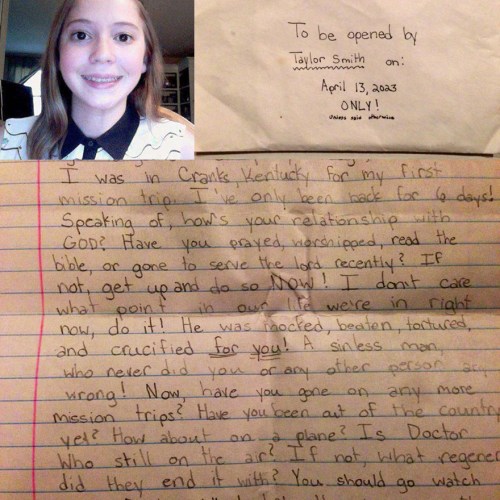 To be opened by
Taylor Smith on:
April 13, 2023
ONLY!
unless said otherwise
I was in Cranks, Kentucky for my first
mission trip. I've only been back for 6 days!
Speaking of, how's your relationship with
GOD? Have you prayed, worshipped, read the
bible, or gone to serve the lord recently? If
not, get up and do so NOW! I don't care
what point in our life we're in right
now, do it! He was mocked, beaten, tortured,
and crucified for you! A sinless man,
who never did you or any other person any
wrong! Now, have you gone on any more
mission trips? Have you been out of the country
yet? How about on a plane? Is Doctor
Who still on the air? If not, what regener
did they end it with? You should go watch